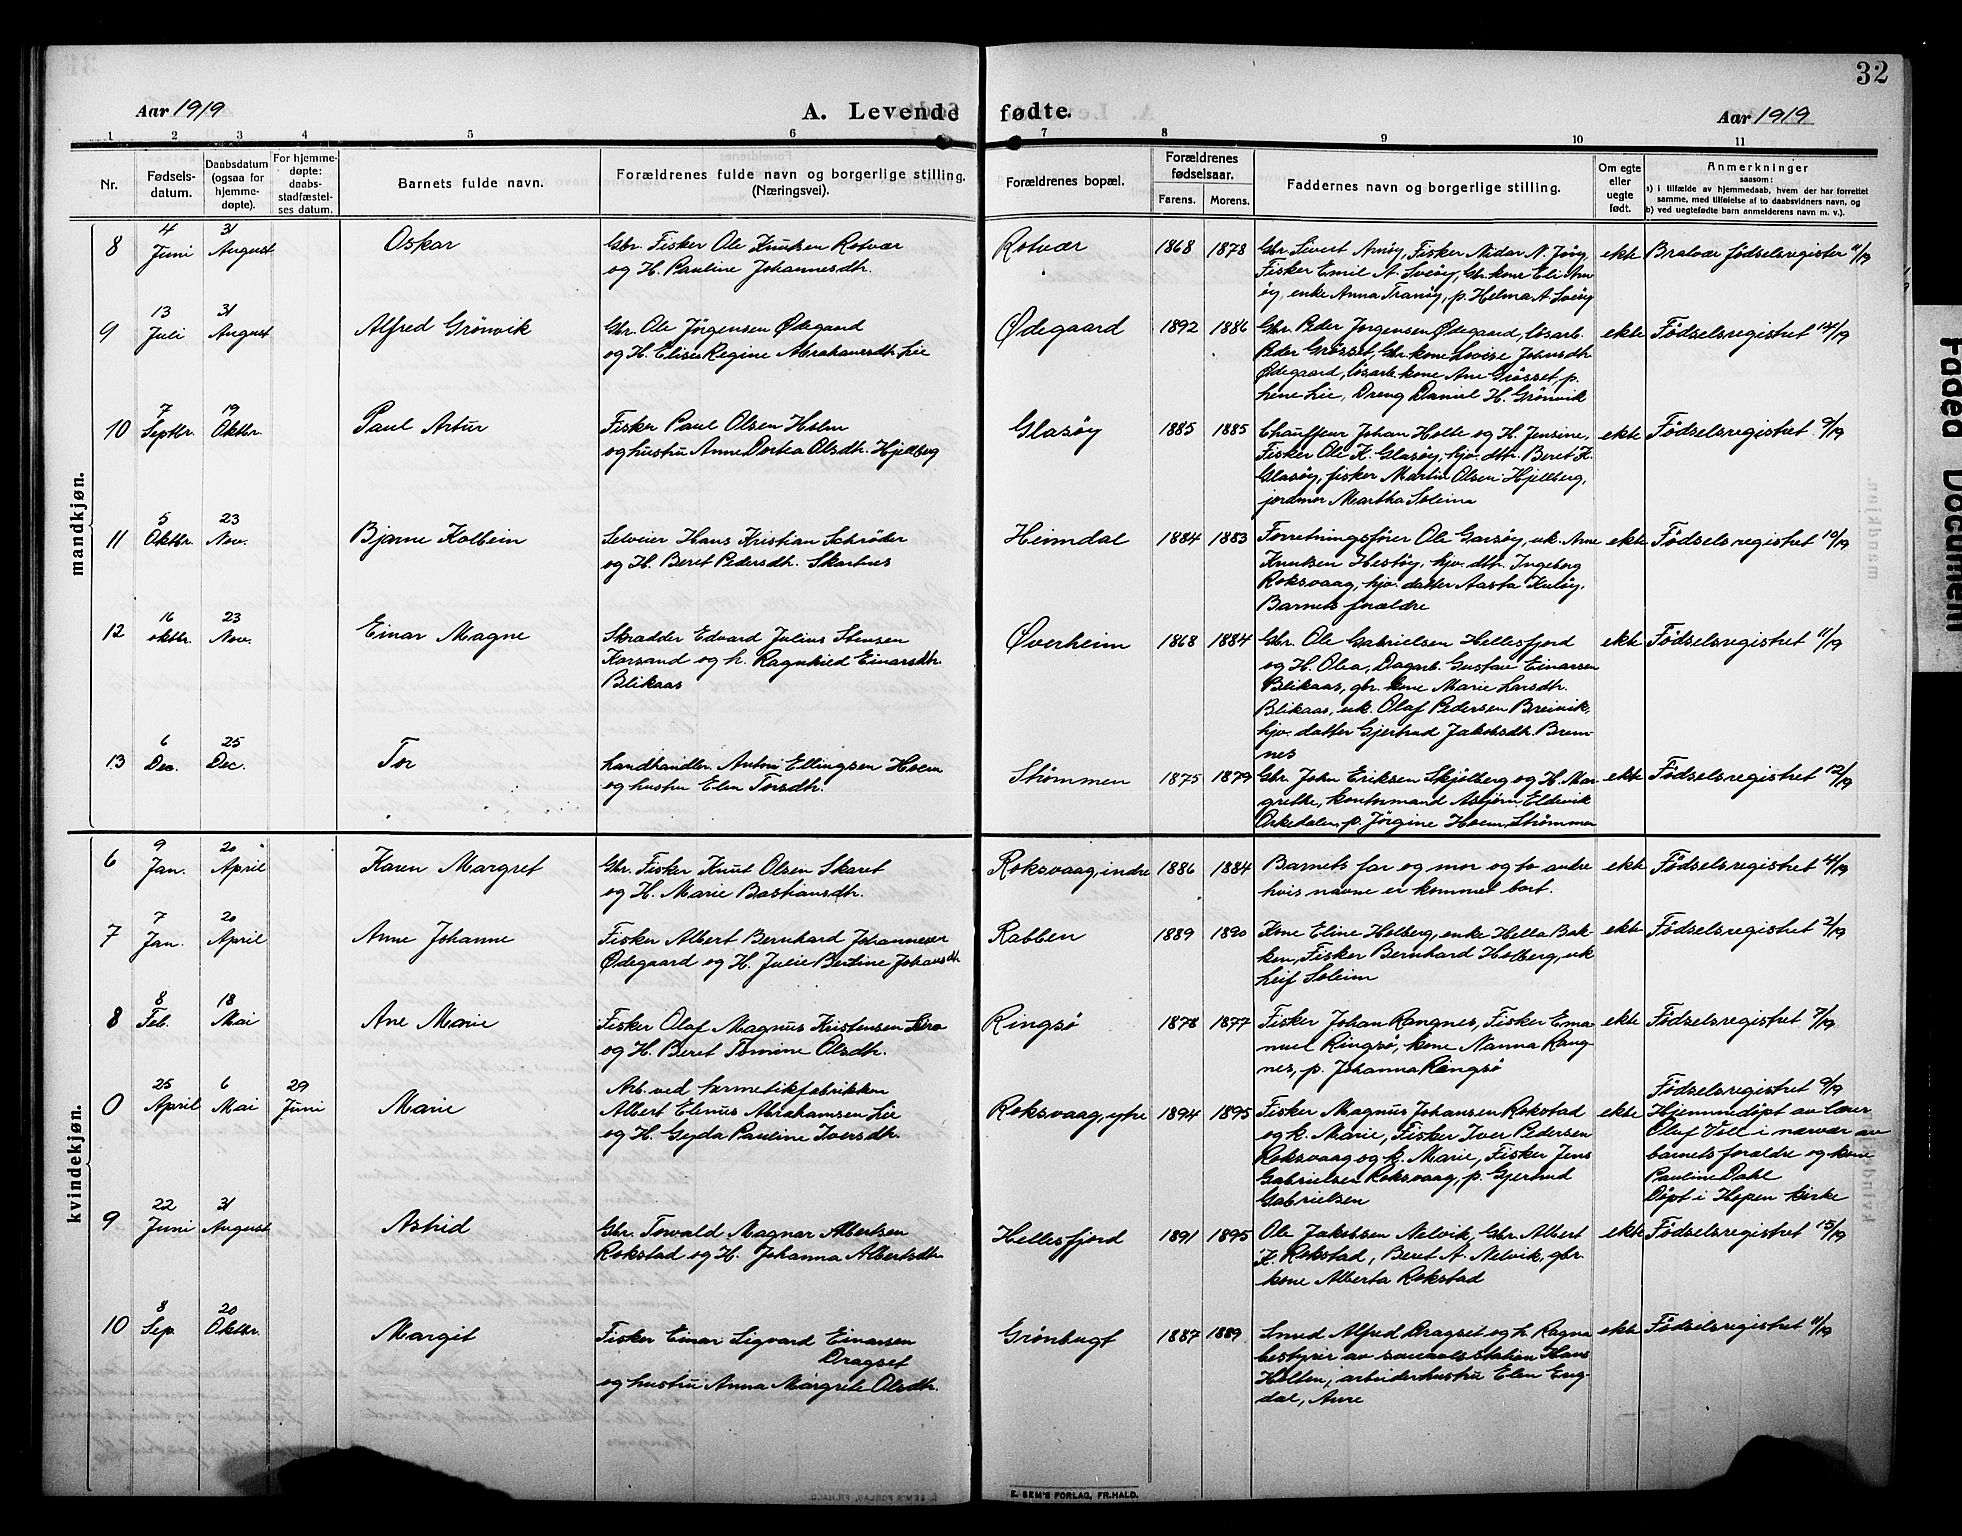 32
Aar 1919
A. Levende fødte.
Aar 1919
1 2 3 4 5 6 7 8 9 10 11
Nr.
Fødsels-
datum.
Daabsdatum
(ogsaa for
hjemme-
døpte).
For hjemme-
døpte:
daabs-
stadfæstel-
ses datum.
Barnets fulde navn.
Forældrenes fulde navn og borgerlige stilling.
(Næringsvei).
Forældrenes bopæl.
Forældrenes
fødselsaar.
Farens. Morens.
Faddernes navn og borgerlige stilling.
Om egte
eller
uegte
født.
Anmerkninger
saasom:
a) i tilfælde av hjemmedaab, hvem der har forrettet
samme, med tilføielse av to daabsvidners navn, og
b) ved uegtefødte barn anmelderens navn m. v.).
mandkjøn.
8
4 Juni
31 August
Oskar
Gbr. Fisker Ole Knutsen Rotvær
og H. Pauline Johannesdh.
Rotvær
1868 1878
Gbr Sivert Amøy, Fisker Nidar N. Jøøy,
Fisker Emil A Sveøy, Gbr. kone Eli Am
øy, enke Anna Tranøy, p. Helma A Sveøy
ekte
Bratvær fødselsregister 11/19
9
13 Juli
31 August
Alfred Grönvik
Gbr. Ole Jörgensen Ødegaard
og H. Elise Regine Abrahamsdh. Lie
Ødegaard
1892 1886
Gbr. Peder Jorgensen Ødegaard, lösarb.
Peder Grösset, Gbr. kone Lovise Johnsdh
Ødegaard, lösarb. kone Ane Grösset, p.
Lene Lie, Dreng Daniel H. Grönvik
ekte
Födselsregistret 14/19
10
7 Septbr.
19 Oktbr.
Paul Artur
Fisker Paul Olsen Holm
og hustru Anne Dortea Olsdh. Hjellberg
Glasöy
1885 1885
Chauffeur Johan Holte og H. Jensine,
Fisker Ole K. Glasöy, hjv. dth. Beret K.
Glasöy, fisker Martin Olsen Hjellberg,
jordmor Martha Soleim
ekte
Födselsregistret 9/19
11
5 Oktbr.
23 Nov.
Bjarne Kolbein
Selveier Hans Kristian Schröder
og H. Beret Pedersdh. Skarsnes
Heimdal
1884 1883
Forretningsfører Ole Garsöy, uk. Arne
Knutsen Hestöy, hjv. dtr. Ingeborg
Roksvaag, hjv. datter Aasta Kulöy,
Barnets forældre
ekte
Födselsregistret 10/19
12
16 oktbr.
23 Nov.
Einar Magne
Skradder Edvard Julius Stensen
Korsand og h. Ragnhild Einarsdh.
Blikaas
Øverheim
1868 1884
Gbr. Ole Gabrielsen Hellesfjord
og H. Olea, Dagarb. Gustav Einarsen
Blikaas, gbr. kone Marie Larsdh.
Blikaas, uk. Olaf Pedersen Breivik,
hjv. datter Gjertrud Jakobsdh. Brem-
nes
ekte
Födselsregistret 11/19
13
6 Dec.
25 Dec.
Tor
Landhandler Anton Ellingsen Hoem
og hustru Elen Torsdh.
Strömmen
1875 1879
Gbr. John Eriksen Skjölberg og H. Mar
grethe, kontormand Asbjörn Eldevik
Orkedalen, p. Jörgine Hoem, Strömmen
ekte
Födselsregistret 12/19
kvindekjøn.
6
9 Jan.
20 April
Karen Margret
Gbr. Fisker Knut Olsen Skaret
og H. Marie Bastiansdh.
Roksvaag, indre
1886 1884
Barnets far og mor og to andre
hvis navne er kommet bort.
ekte
Födselsregistret 4/19
7
7 Jan.
20 April
Anne Johanne
Fisker Albert Bernhard Johannesen
Ødegaard og H. Julie Bertine Johansdh
Rabben
1889 1890
Kone Eline Holberg, enke Hella Bak-
ken, Fisker Bernhard Holberg, uk
Leif Soleim
ekte
Födselsregistret 2/19
8
8 Feb.
18 Mai
Ane Marie
Fisker Olaf Magnus Kristensen
og H. Beret Tomine Olsdh.
Ringsö
1878 1877
Fisker Johan Rangnes, Fisker Ema
nuel Ringsö, kone Nanna Rang-
nes, p. Johanna Ringsö
ekte
Födselsregistret 7/19
0
25 April
6 Mai
29 Juni
Marie
Arb. ved hermetikfabrikken
Albert Elenus Abrahamsen Lie
og H. Gyda Pauline Iversdh.
Roksvaag, ytre
1894 1895
Fisker Magnus Johansen Rokstad
og k. Marie, Fisker Iver Pedersen
Roksvaag og k. Marie, Fisker Jens
Gabrielsen Roksvaag, p. Gjertrud
Gabrielsen
ekte
Födselsregistret 9/19
Hjemmedöpt av lærer
Olaf Voll i nærvær av
barnets forældre og kone
Pauline Dahl
Döpt i Hopen kirke
9
22 Juni
31 August
Astrid
Gbr. Torvald Magnar Albertsen
Rokstad og H. Johanna Albertsdh
Hellesfjord
1891 1895
Ole Jakobsen Nelvik, Gbr. Albert
K. Rokstad, Beret A. Nelvik, gbr.
kone Alberta Rokstad
ekte
Födselsregistret 15/19
10
8 Sep.
20 Oktbr.
Margit
Fisker Einar Sigvard Einarsen
Dragset
og hustru Anna Margrete Olsdh.
Grönbugt
1887 1889
Smed Alfred Dragset og h. Ragna
bestyrer av station Hans
Holten, arbeiderhustru Elen Eng-
dal, Aure
ekte
Födselsregistret 11/19
E. SEM'S FORLAG, FR.HALD.
Faded Document